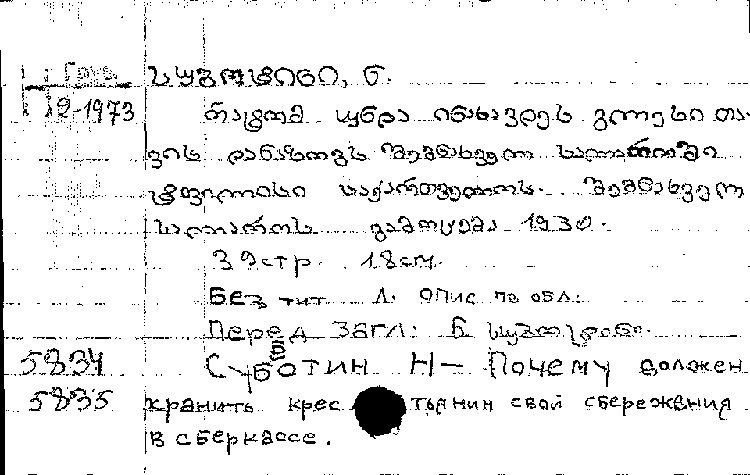 Груз. სუბოტინი, ნ.
12-1973 რატომ უნდა ინახავდეს გლეხი თა-
ვის დანაზოგს შემნახველ სალაროში
ტფილისი საქართველოს. შემნახველ
სალაროს გამოცემა 1930.
39 стр. 18 см.
Без тит. Л. Опис по обл.
Перед загл: Н სუბოტინი.
5834 Субботин Н — Почему должен
5835 хранить крестьянин свои сбережения
в сберкассе.